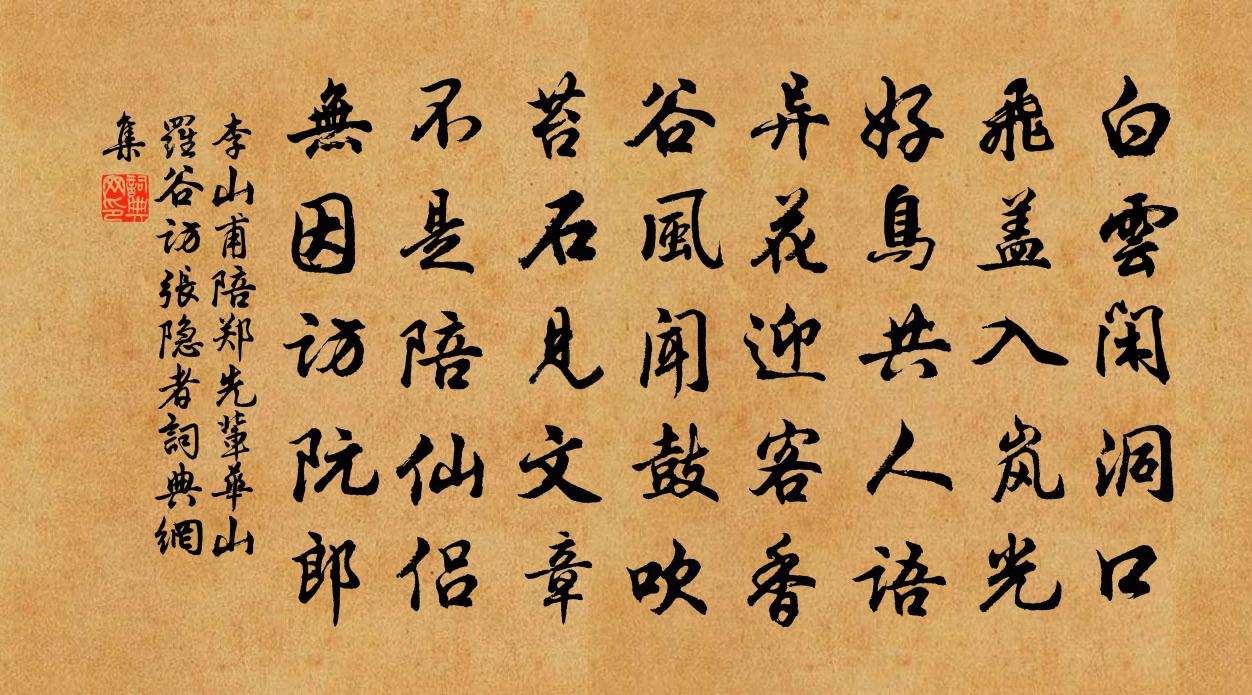 白雲閑洞口
飛盖入岚光
好鳥共人語
异花迎客香
谷風聞鼓吹
苔石見文章
不是陪仙侣
無因訪阮郎
李山甫陪郑先輩華山
羅谷訪張隐者詞典網
集
詞典网印